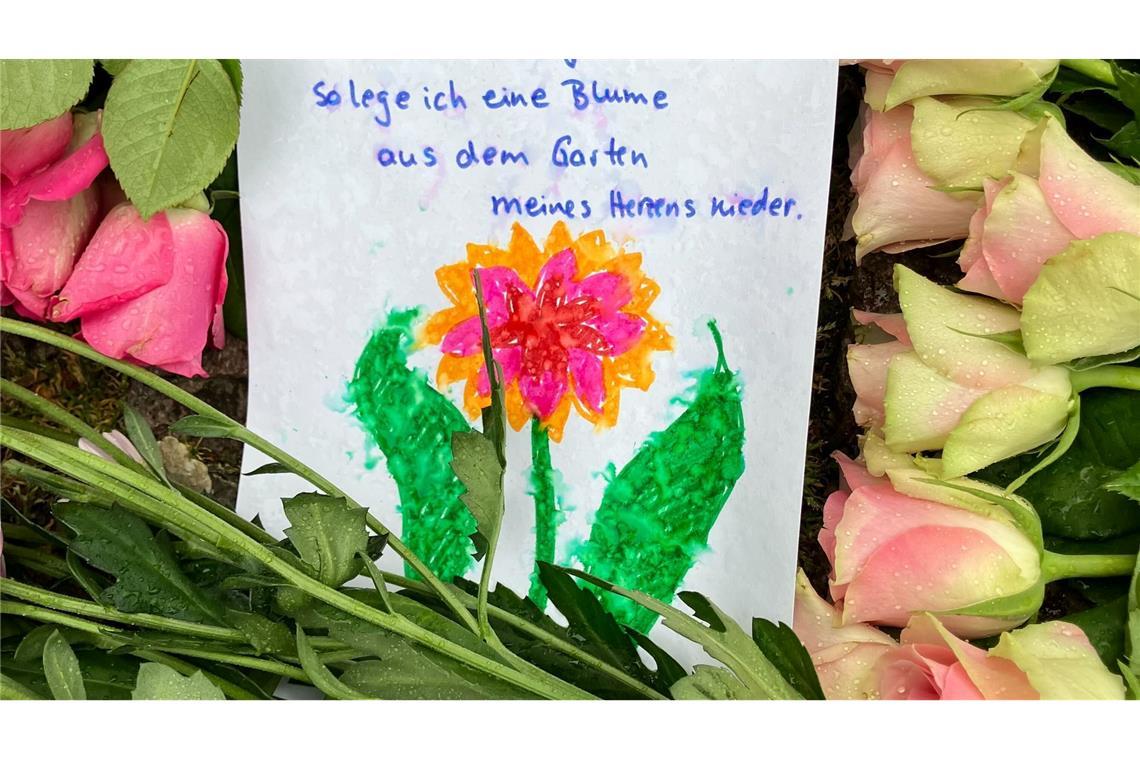 So lege ich eine Blume
aus dem Garten
meines Herzens nieder.